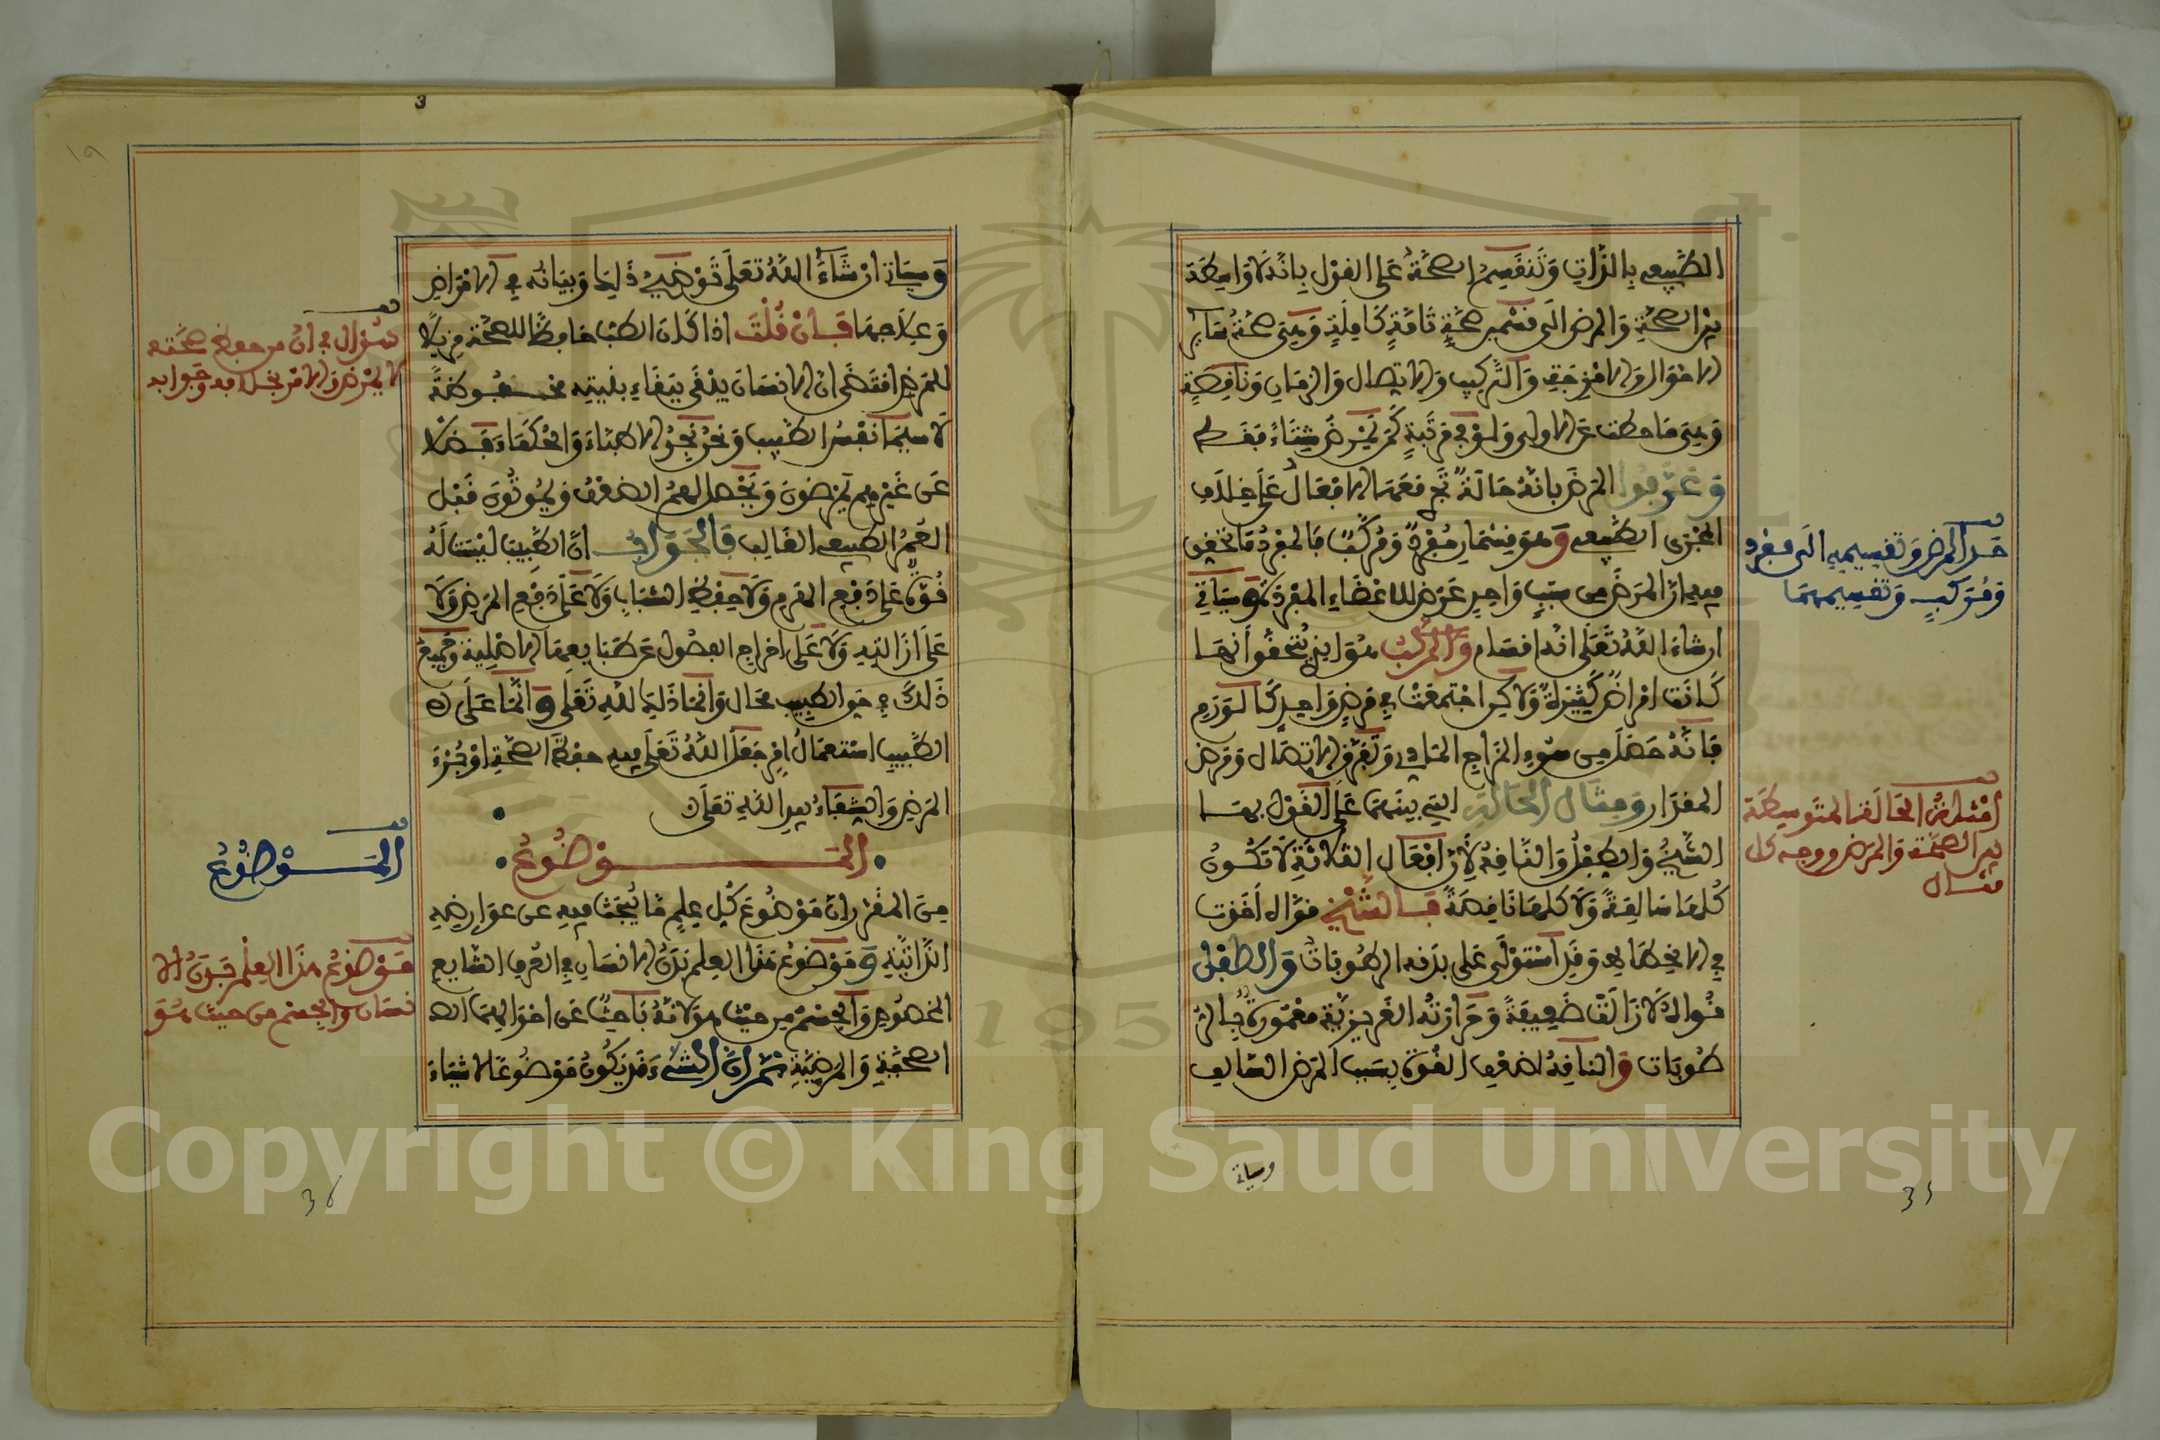 الطبيعي بالذات وتنقسم الصحة على القول بانه لا واسطة
بين الصحة والمرض الى قسمين صحة تامة كاملة وهي صحة سائر
الاحوال والامزجة والتركيب والاتصال والازمان وناقصة
وهي ما حطت عن الاولى ولو في مرتبة كمن يمرض شتاء فقط
وعرفوا المرض بانه حالة تجري معها الافعال على خلاف
المجرى الطبيعي وهو قسمان مفرد ومركب فالمفرد ما تحقق
فيه ان المرض من سبب واحد عرض للاعضاء المفردة وسياتي
ان شاء الله تعلى انه اقسام والمركب هو ان يتحقق انها
كانت امراض كثيرة ولاكن اجتمعت في مرض واحد كالورم
فانه حصل من سوء المزاج المادي وتفرق الاتصال ومرض
المقدار ومثال الحالة التي بينهما على القول بها
الشيخ والطفل والناقه لان افعال الثلاثة لا تكون
كلها سالمة ولا كلها ناقصة فالشيخ قواه اخذت
في الانحطاط وقد استولى على بدنه الرطوبات والطفل
قواه لا زالت ضعيفة وحرارته الغريزية مغمورة بالر
طوبات والناقه لضعف القوة بسبب المرض السالف
وسياتي
حد المرض وتقسيمه الى مفرد
ومركب وتقسيمهما
امثلة الحالة المتوسطة
بين الصحة والمرض ووجه كل
مثال
35
3
19
وسياتي ان شاء الله تعلى توضيح ذلك وبيانه في الامراض
وعلاجها فان قلت اذا كان الطب حافظا للصحة مزيلا
للمرض اقتضى ان الانسان يبقى ببقاء بنيته محفوظة
لا سيما نفس الطبيب ونحن نجد الاطباء والحكماء فضلا
عن غيرهم يمرضون ويحصل لهم الضعف ويموتون قبل
العمر الطبيعي الغالب فالجواب ان الطبيب ليست له
قوة على دفع الهرم ولا حفظ الشباب ولا على دفع المرض ولا
على ازالته ولا على اخراج الفصول عن طبايعها الاصلية وجميع
ذلك في حق الطبيب محال وانما ذلك لله تعلى وانما على
الطبيب استعمال امر جعل الله تعلى فيه حفظ الصحة او برء
المرض والشفاء بيد الله تعلى
الموضوع
من المقرر ان موضوع كل علم ما يبحث فيه عن عوارضه
الذاتية وموضوع هذا العلم بدن الانسان في العرف الشايع
الخصوص والجسم من حيث هو لانه باحث عن احوالهما الـ
الصحية والمرضية ثم ان الشيء قد يكون موضوعا لاشياء
سؤال في ان من حفظ صحته
لا يمرض والامر بخلافه وجوابه
الموضوع
موضوع هذا العلم بدن الا
نسان والجسم من حيث هو
36
Copyright © King Saud University
195